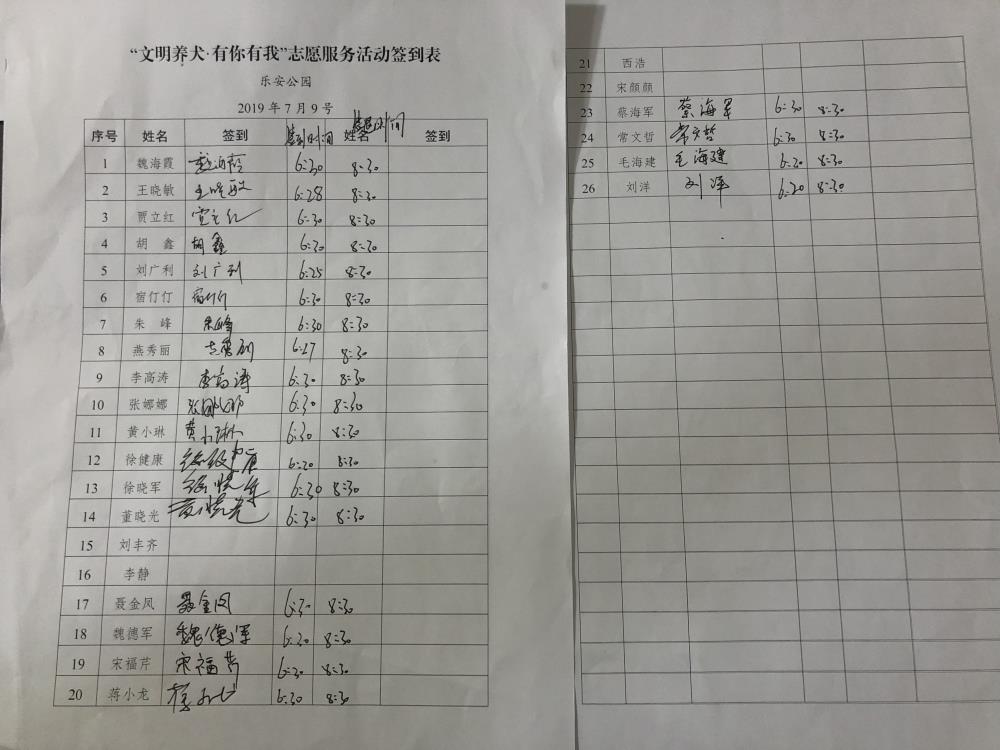 “文明养犬·有你有我”志愿服务活动签到表
乐安公园
2019年7月9号
序号 姓名 签到 签到时间 姓名 签到
1 魏海霞 魏海霞 6:30 8:30
2 王晓敏 王晓敏 6:28 8:30
3 贾立红 贾立红 6:30 8:30
4 胡 鑫 胡鑫 6:30 8:30
5 刘广利 刘广利 6:25 8:30
6 宿仃仃 宿仃仃 6:30 8:30
7 朱 峰 朱峰 6:30 8:30
8 燕秀丽 燕秀丽 6:27 8:30
9 李高涛 李高涛 6:30 8:30
10 张娜娜 张娜娜 6:30 8:30
11 黄小琳 黄小琳 6:30 8:30
12 徐健康 徐健康 6:20 8:30
13 徐晓军 徐晓军 6:30 8:30
14 董晓光 董晓光 6:30 8:30
15 刘丰齐
16 李静
17 聂金凤 聂金凤 6:30 8:30
18 魏德军 魏德军 6:30 8:30
19 宋福芹 宋福芹 6:30 8:30
20 蒋小龙 6:30 8:30
21 西浩
22 宋颜颜
23 蔡海军 蔡海军 6:30 8:30
24 常文哲 常文哲 6:30 8:30
25 毛海建 毛海建 6:20 8:30
26 刘洋 刘洋 6:20 8:30